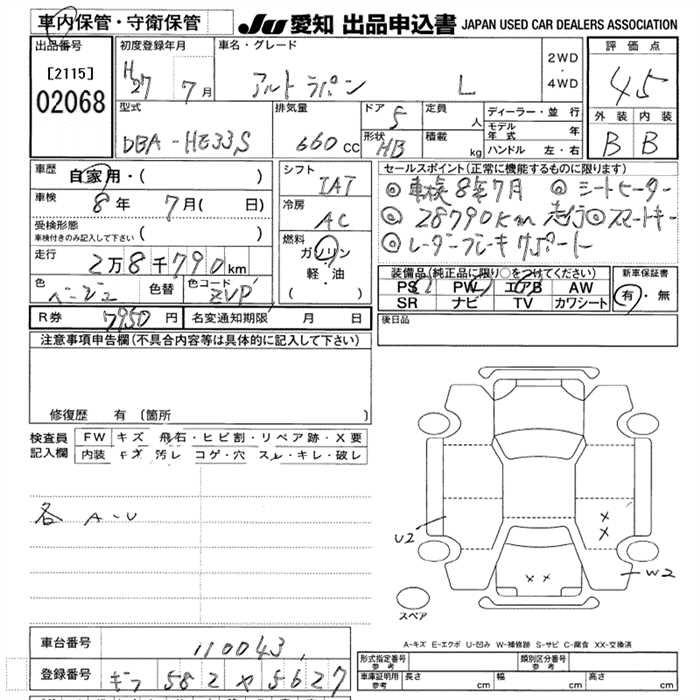 車内保管・守衛保管
JU 愛知 出品申込書 JAPAN USED CAR DEALERS ASSOCIATION
出品番号
[2115]
02068
初度登録年月
H27 7月
車名・グレード
アルトラパン L
2WD
・
4WD
評価点
4.5
外装 内装
B B
型式
DBA-HE33S
排気量
660cc
ドア 5
形状 HB
定員 人
積載 kg
ディーラー・並行
モデル年式 年
ハンドル 左・右
車歴
自家用・( )
車検
8年 7月( 日)
受検形態
車検付きのみ記入して下さい ( )
走行
2万8千790km
色
ベージュ
色替
色コード
ZVP
R券 7950円
名変通知期限 月 日
シフト
IAT
冷房
AC
燃料
ガソリン
軽・油
( )
セールスポイント(正常に機能するものに限ります)
◎車検8年7月 ◎シートヒーター
◎28790km走行◎スマートキー
◎レーダーブレーキサポート
装備品(純正品に限り○をつけてください)
PS PW エアB AW
SR ナビ TV カワシート
新車保証書
有・無
後日品
注意事項申告欄(不具合内容等は具体的に記入して下さい)
修復歴 有〔箇所 〕
検査員記入欄
FW キズ・飛石・ヒビ割・リペア跡・X要
内装 キズ・汚レ・コゲ・穴・スレ・キレ・破レ
各 A-U
U2
X
X
X X
W2
スペア
A-キズ E-エクボ U-凹み W-補修跡 S-サビ C-腐食 XX-交換済
車台番号
110043
登録番号
ギフ 582 や 5627
形式指定番号
参考
類別区分番号
参考
車庫証明用
参考
長さ cm 幅 cm 高さ cm